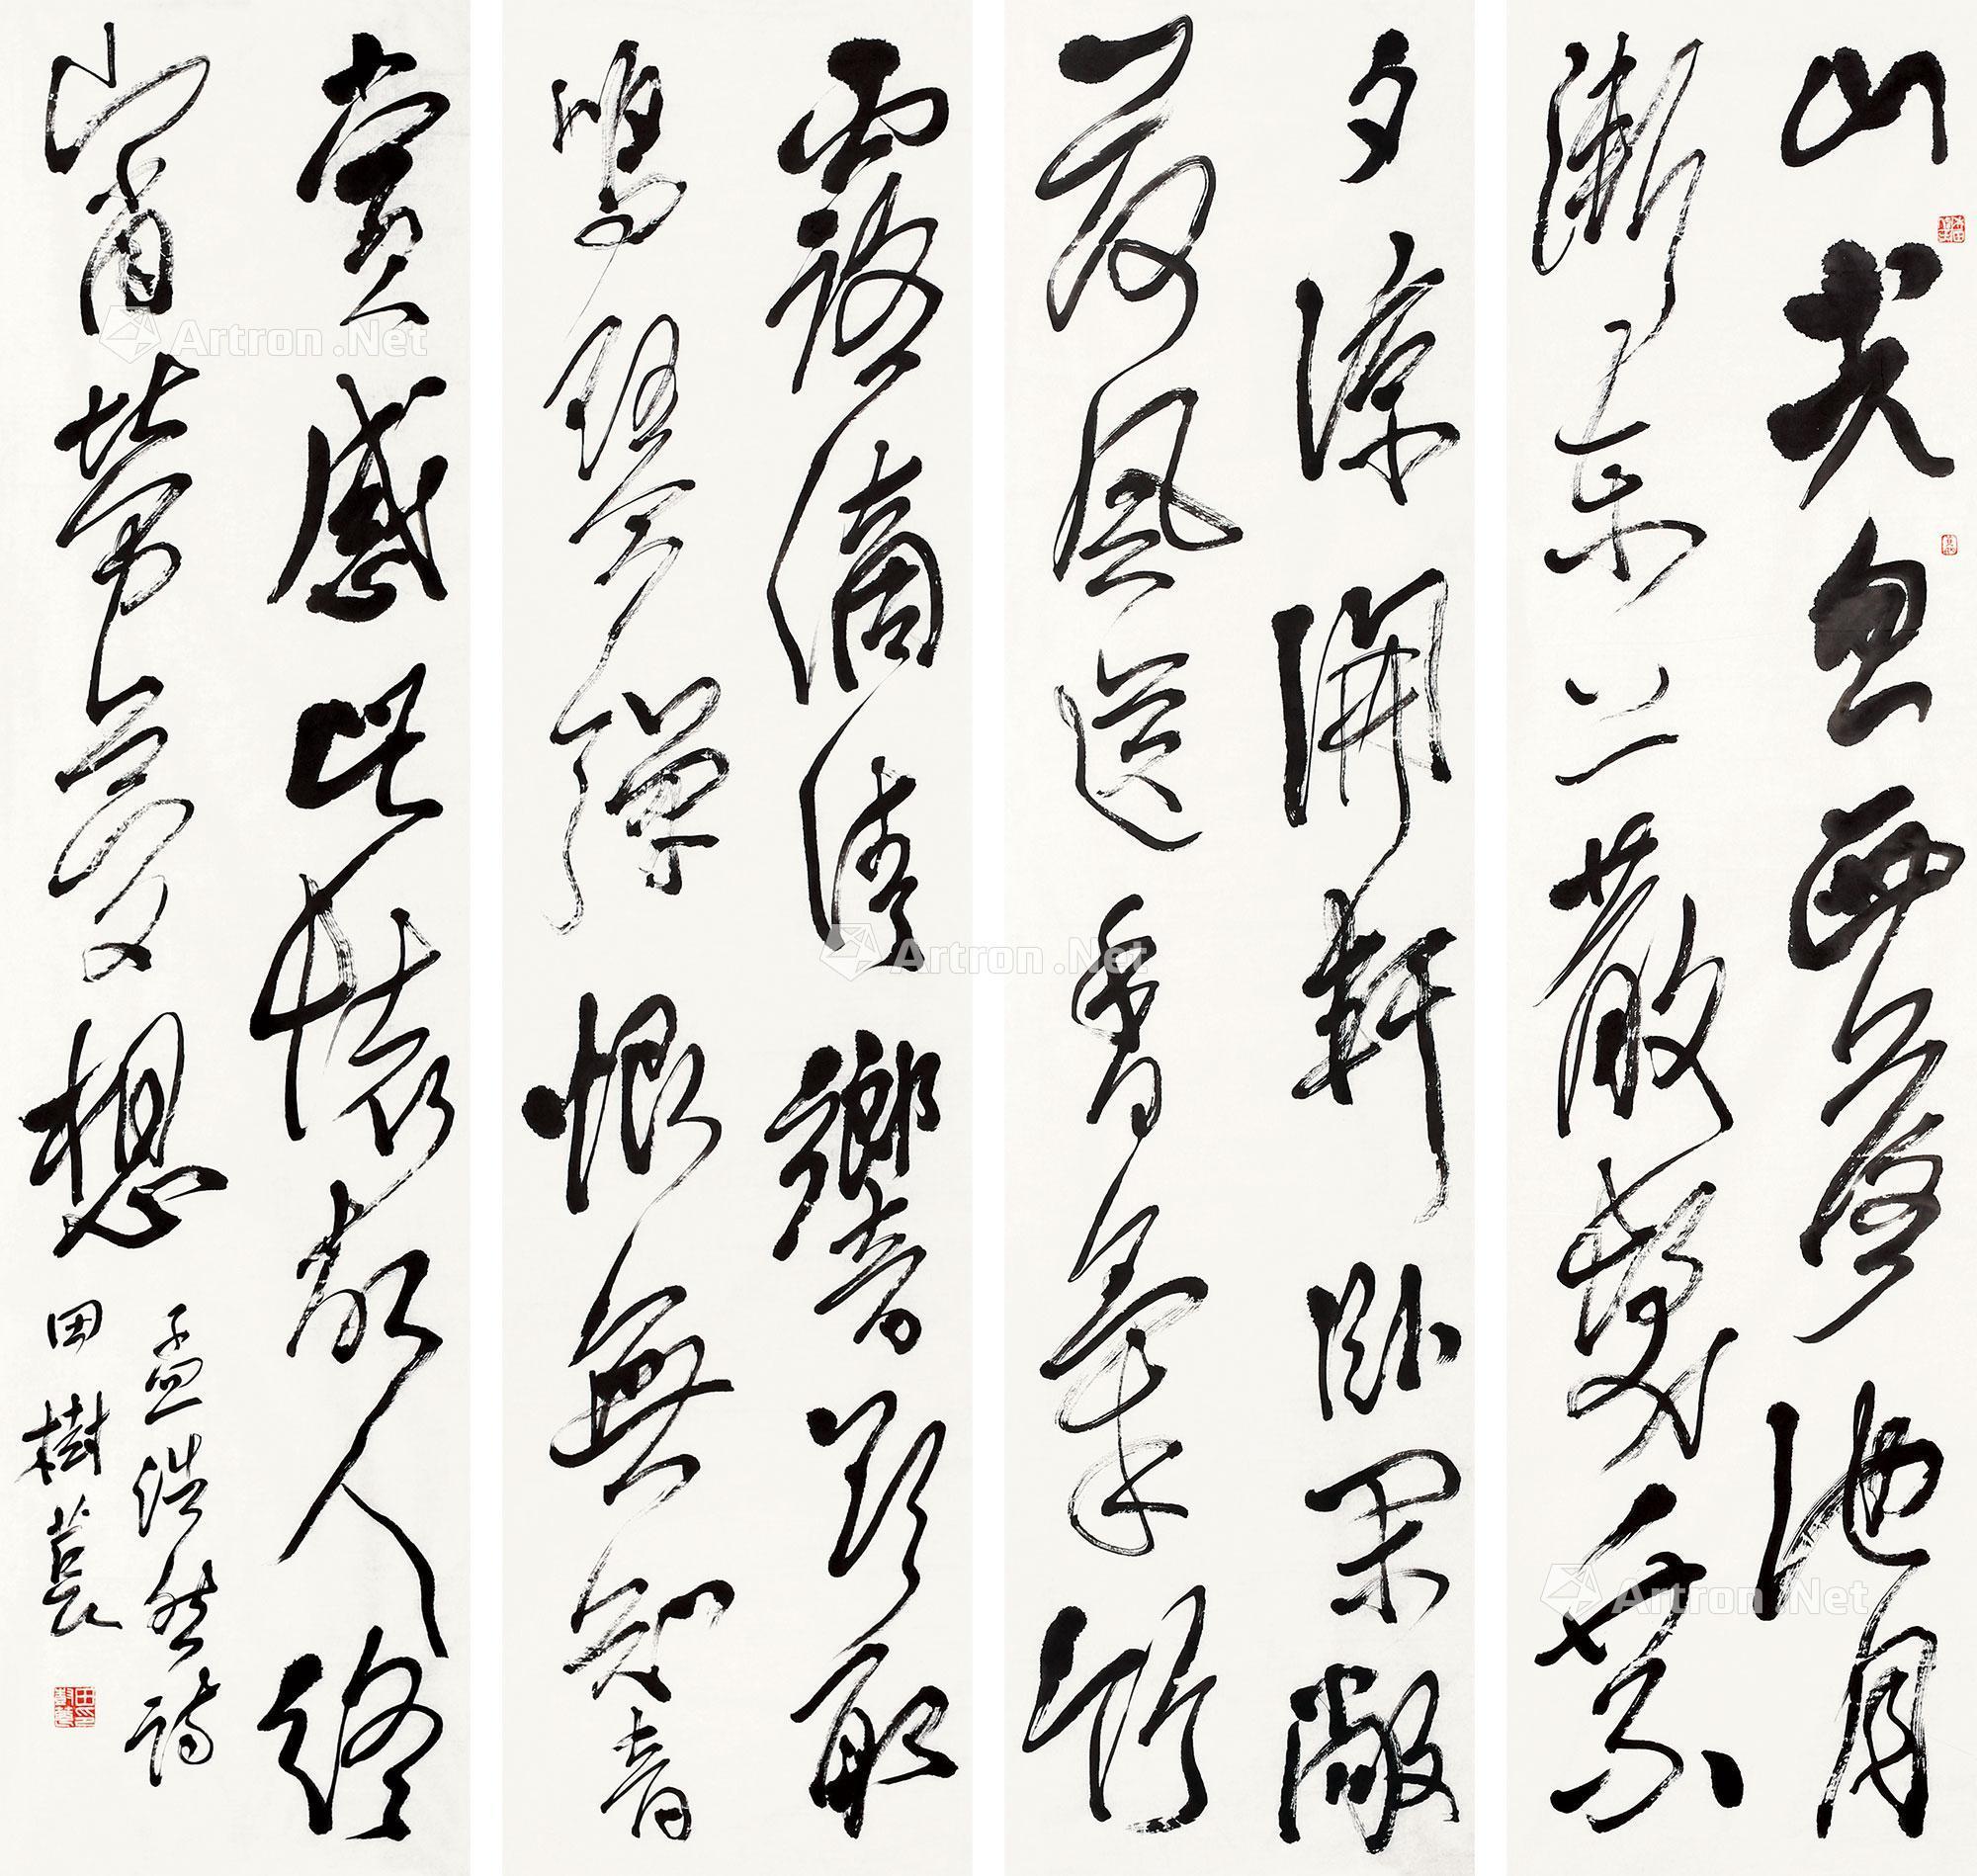 山光忽西落池月
漸東上散髮乘
夕涼開軒卧閑敞
荷風送香氣竹
露滴清響欲取
鳴琴彈恨無知音
賞感此懷故人終
宵勞夢想
孟浩然詩
田樹萇
Artron.Net
Artron.Net
Artron.Net